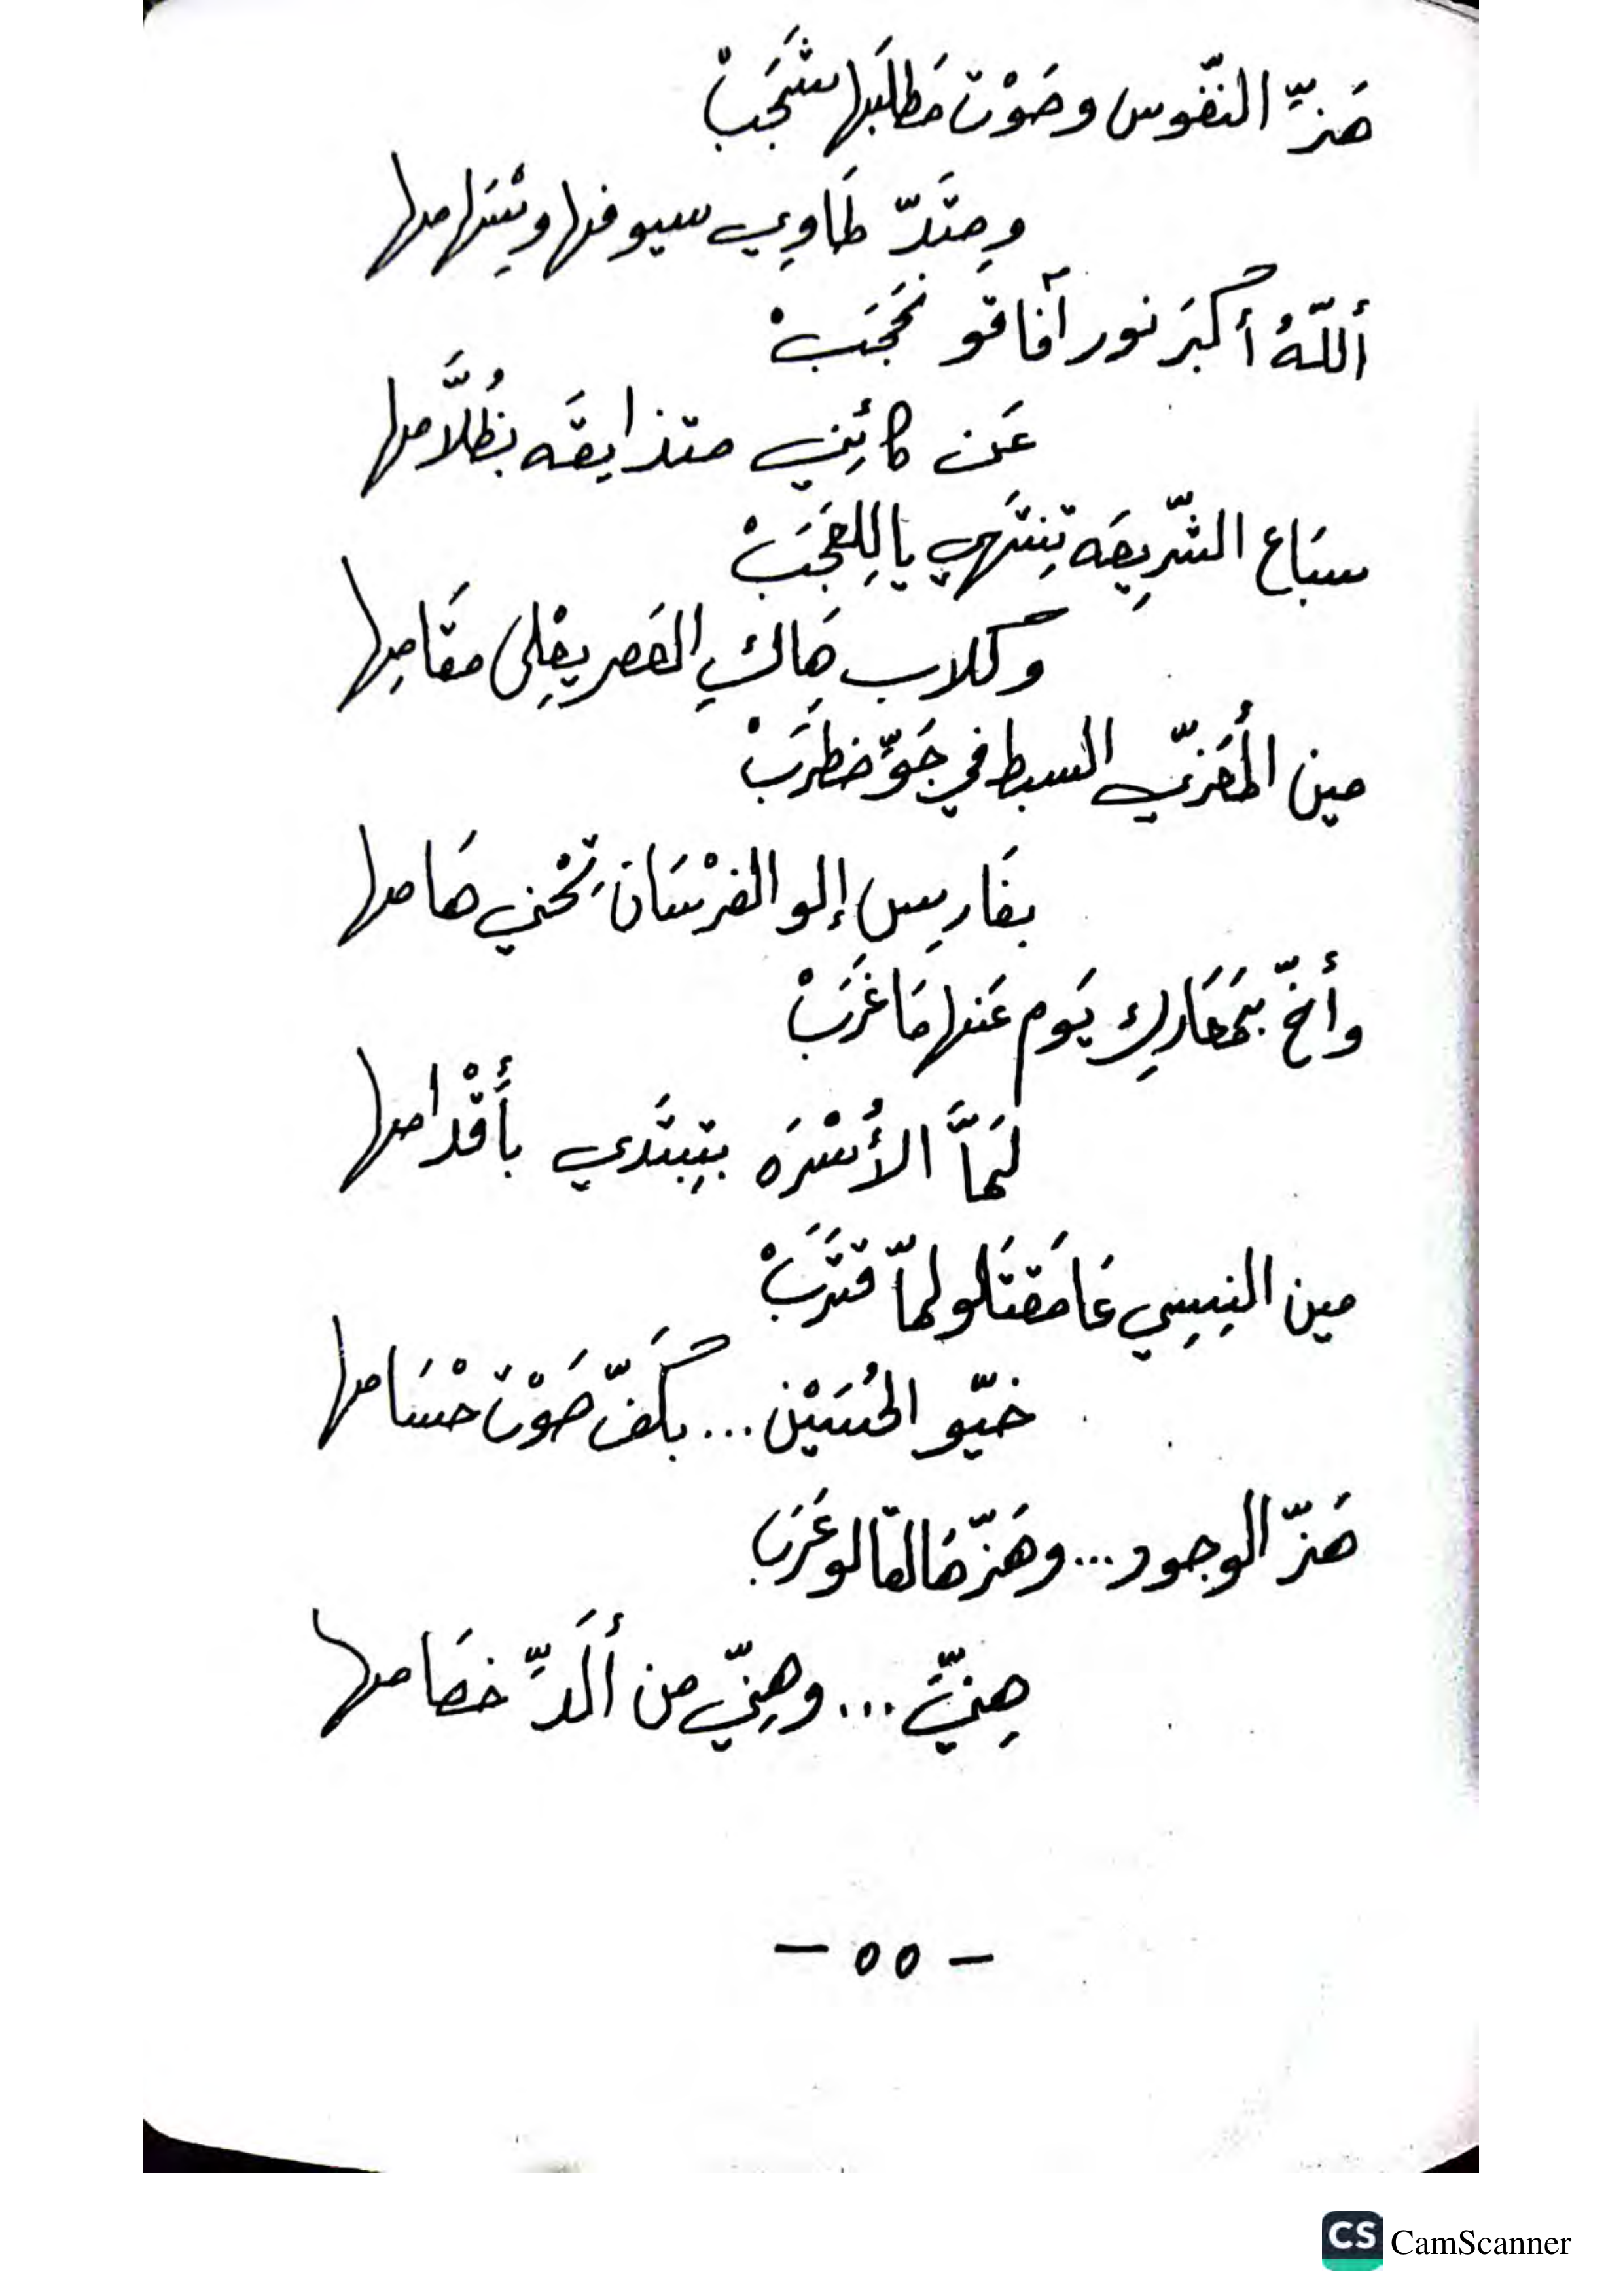 هَزِّ النّفوس وصَوْت مَطالَبها شَجَبْ
ومِتَدّ طَاوِي سيوفها وسْهَامها
أللّهُ أكبَر نور آفاقو نحَجَبْ
عَن كائِنِي متذايقَه بظُلَّامها
سبَاع الشّرِيعَه تِنتَهي ياللِعَجَبْ
وكلاب هَاكِ العَصر يِعْلى مقَامِها
مين المُعَزّي السبط في جَوّ ضطِرَبْ
بفَارِس إلو الفرْسَان تِحْني هَامها
وأخّ بمَعَارِك يَوم عَنها مَا غَرَبْ
لمَّا الأسْرَه بتِبتَدي بأَقْدامها
مين النِسِي عَا مَقتَلو لمّا قتَرَبْ
خيّو الحُسَيْن... بكَفّ صَوْت حْسَامها
هَزّ الوجود... وهَزّ هَالقَالو عَرَب
هِنِّي... وهِنِّي من ألَدِّ خصَامها
- ٥٥ -
CS CamScanner